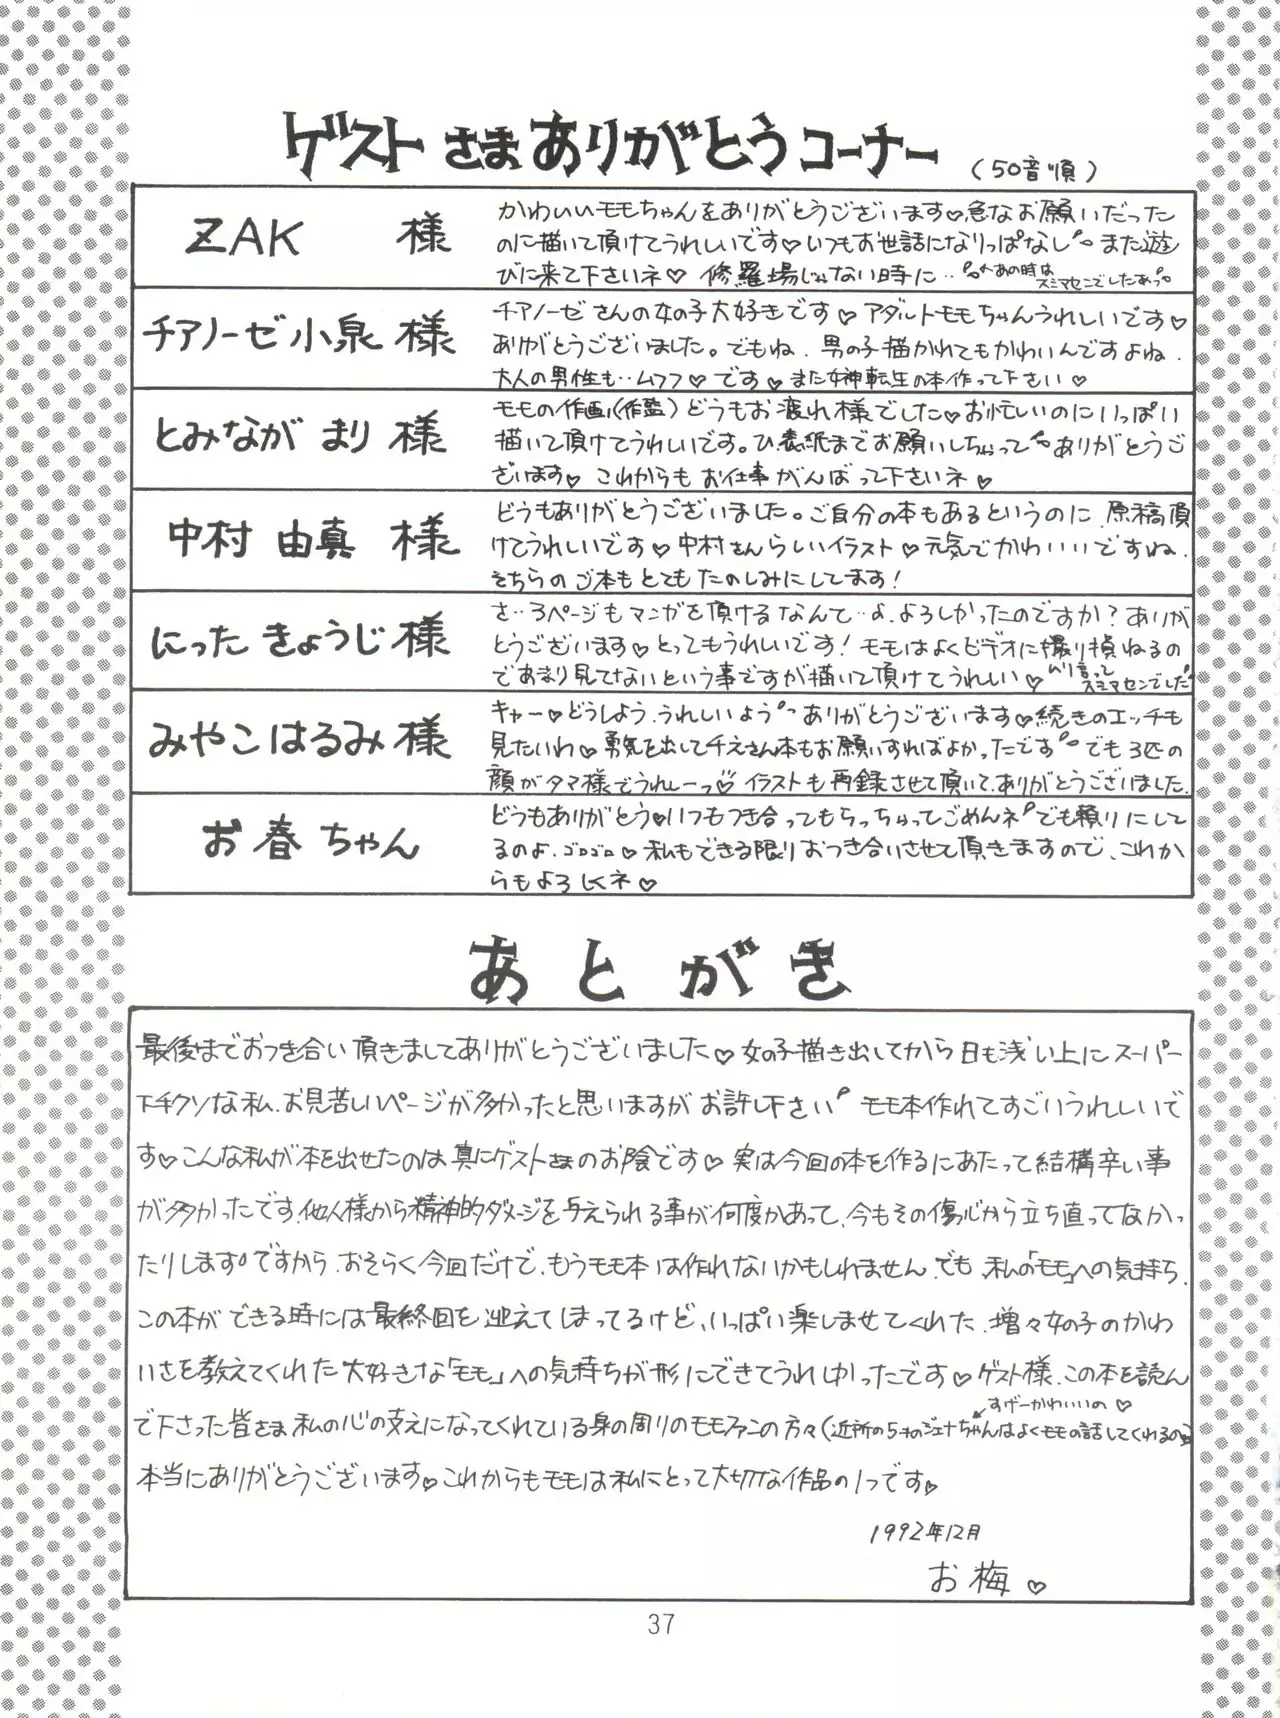 ゲストさまありがとうコーナー (50音順)
ZAK 様
かわいいモモちゃんをありがとうございます♡急なお願いだった
のに描いて頂けてうれしいです♡いつもお世話になりっぱなし また遊
びに来て下さいネ♡ 修羅場じゃない時に‥ あの時は
スミマセンでしたあっ
チアノーゼ小泉 様
チアノーゼさんの女の子大好きです♡アダルトモモちゃんうれしいです♡
ありがとうございました。でもね、男の子描かれてもかわいんですよね、
大人の男性も‥ムフフ♡です♡また女神転生の本作って下さい♡
とみなが まり 様
モモの作画(作監)どうもお疲れ様でした♡お忙しいのにいっぱい
描いて頂けてうれしいです。ひ、表紙までお願いしちゃって ありがとうご
ざいます♡ これからもお仕事がんばって下さいネ♡
中村 由真 様
どうもありがとうございました。ご自分の本もあるというのに、原稿頂
けてうれしいです♡中村さんらしいイラスト♡元気でかわいいですね、
そちらのご本もとてもたのしみにしてます!
にった きょうじ 様
さ‥3ページもマンガを頂けるなんて‥よ、よろしかったのですか?ありが
とうございます♡とってもうれしいです! モモはよくビデオに撮り損ねるの
であまり見てないという事ですが描いて頂けてうれしい♡ ムリ言って
スミマセンでした
みやこ はるみ 様
キャー♡どうしよう、うれしいよう ありがとうございます♡続きのエッチも
見たいわ♡勇気を出して千えさん本もお願いすればよかったです でも3匹の
顔がタマ様でうれしーっ♡イラストも再録させて頂いて、ありがとうございました。
お春ちゃん
どうもありがとう♡いつもつき合ってもらっちゃってごめんネ でも頼りにして
るのよ、ゴロゴロ♡私もできる限りおつき合いさせて頂きますので、これか
らもよろしくネ♡
あとがき
最後までおつき合い頂きましてありがとうございました♡女の子描き出してから日も浅い上にスーパー
下手クソな私、お見苦しいページが多かったと思いますがお許し下さい モモ本作れてすごいうれしいで
す♡こんな私が本を出せたのは真にゲストさまのお陰です♡実は今回の本を作るにあたって結構辛い事
が多かったです、他人様から精神的ダメージを与えられる事が何度かあって、今もその傷心から立ち直ってなかっ
たりします ですから、おそらく今回だけで、もうモモ本は作れないかもしれません、でも、私の「モモ」への気持ち、
この本ができる時には最終回を迎えてしまってるけど、いっぱい楽しませてくれた、増々女の子のかわ
いさを教えてくれた大好きな「モモ」への気持ちが形にできてうれしかったです♡ゲスト様、この本を読ん
で下さった皆さま、私の心の支えになってくれている身の周りのモモファンの方々(近所の5才のジェナちゃんはよくモモの話してくれるの)
すげーかわいいの♡
本当にありがとうございます♡これからもモモは私にとって大切な作品の1つです♡
1992年12月
お梅♡
37